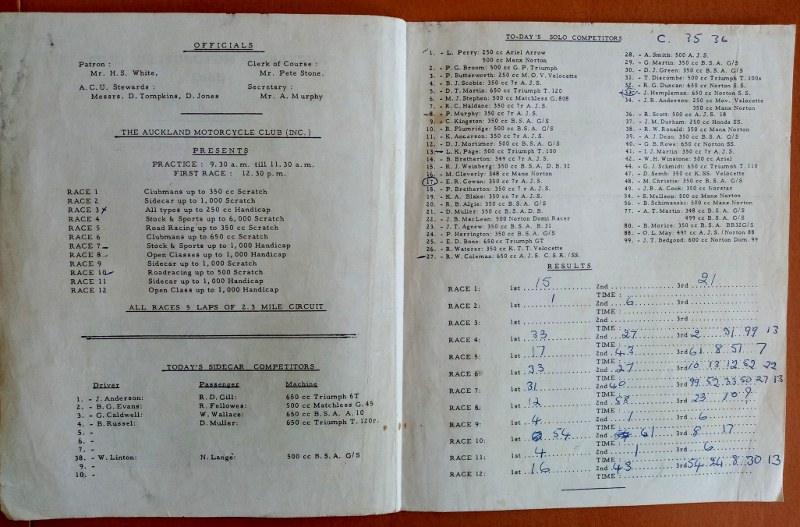 OFFICIALS
Patron :
Mr. H.S. White,
Clerk of Course :
Mr. Pete Stone.
A.C.U. Stewards :
Messrs. D. Tompkins, D. Jones
Secretary :
Mr. A. Murphy
THE AUCKLAND MOTORCYCLE CLUB (INC.)
PRESENTS
PRACTICE : 9.30 a.m. till 11.30 a.m.
FIRST RACE : 12.30 p.m.
RACE 1 Clubmans up to 350 cc Scratch
RACE 2 Sidecar up to 1,000 Scratch
RACE 3 All types up to 250 cc Handicap
RACE 4 Stock & Sports up to 6,000 Scratch
RACE 5 Road Racing up to 350 cc Scratch
RACE 6 Clubmans up to 650 cc Scratch
RACE 7 Stock & Sports up to 1,000 Handicap
RACE 8 Open Classes up to 1,000 Handicap
RACE 9 Sidecar up to 1,000 Scratch
RACE 10 Roadracing up to 500 Scratch
RACE 11 Sidecar up to 1,000 Handicap
RACE 12 Open Class up to 1,000 Handicap
ALL RACES 5 LAPS OF 2.3 MILE CIRCUIT
TODAY'S SIDECAR COMPETITORS
Driver Passenger Machine
1. - J. Anderson: R.D. Gill: 650 cc Triumph 6T
2. - B.G. Evans: R. Fellowes: 500 cc Matchless G.45
3. - G. Caldwell: W. Wallace: 650 cc B.S.A. A.10
4. - B. Russel: D. Muller: 650 cc Triumph T.120r.
5. -
6. -
7. -
38. - W. Linton: N. Lange: 500 cc B.S.A. G/S
9. -
10. -
TO-DAY'S SOLO COMPETITORS C. 35 36
1. - L. Perry: 250 cc Ariel Arrow
500 cc Manx Norton
2. - P.G. Broom: 500 cc G.P. Triumph
3. - P. Butterworth: 250 cc M.O.V. Velocette
4. - B.J. Scobie: 350 cc 7r A.J.S.
5. - D.T. Martin: 650 cc Triumph T.120
6. - M.J. Stephen: 500 cc Matchless G.80S
7. - R.C. Haldane: 350 cc 7r A.J.S.
8. - P. Murphy: 350 cc 7r A.J.S.
9. - C. Kingston: 350 cc B.S.A. G/S
10. - R. Plumridge: 500 cc Manx Norton
11. - K. Anderson: 350 cc 7r A.J.S.
12. - D.J. Mortimer: 500 cc B.S.A. G/S
13. - L.K. Page: 500 cc Triumph T.100
14. - B. Bretherton: 349 cc 7r A.J.S.
15. - R.J. Weinberg: 350 cc B.S.A. D.B. 32
16. - M. Cleverly: 348 cc Manx Norton
17. - E.R. Cowan: 350 cc 7r A.J.S.
18. - P. Bretherton: 350 cc 7 r A.J.S.
19. - K.A. Blake: 350 cc 7r A.J.S.
20. - R.D. Algie: 500 cc B.S.A. G/S
21. - D. Muller: 350 cc B.S.A.D.B.
22. - J.B. MacLean: 500 Norton Domi Racer
23. - J.T. Agnew: 350 cc B.S.A. B.31
24. - P. Herrington: 350 cc B.S.A. G/S
25. - E.D. Bone: 650 cc Triumph GT
26. - R. Waterer: 350 cc K.T.T. Velocette
27. - R.W. Coleman: 650 cc A.J.S. C.S.R./SS.
28. - A. Smith: 500 A.J.S.
29. - G. Martin: 350 cc B.S.A. G/S
30. - D.J. Green: 350 cc B.S.A. G/S
31. - T. Discombe: 500 cc Triumph T.100s
32. - R.G. Duncan: 650 cc Norton S.S.
33. - J. Hemplemas: 650 cc Norton S.S.
34. - J.R. Anderson: 250 cc Mov. Velocette
350 cc Manx Norton
36. - R. Scott: 500 cc A.J.S. 18
37. - J.M. Durham: 250 cc Honda SS.
38. - R.W. Ronald: 350 cc Manx Norton
39. - A.J. Dean: 350 cc B.S.A. G/S
40. - G.B. Rowe: 650 cc Norton SS.
41. - I.J. Martin: 350 cc 7r A.J.S.
42. - W.H. Winstone: 500 cc Ariel
44. - G.J. Schmidt: 650 cc Triumph T.110
47. - D. Semb: 350 cc K.SS. Velocette
48. - M. Christie: 350 cc B.S.A. G/S
54. - E. McIleon: 500 cc Manx Norton
56. - B. Schimanski: 500 cc Manx Norton
77. - A.T. Martin: 348 cc B.S.A. G/S
499 cc B.S.A. G/S
80. - B. Morice: 350 cc B.S.A. BB32G/S
88. - O.L. May: 497 cc A.J.S. /Norton 88
99. - J.T. Bedgood: 600 cc Norton Dom. 99
RESULTS
RACE 1: 1st 15 2nd 3rd 21
TIME :
RACE 2: 1st 1 2nd 6 3rd
TIME :
RACE 3: 1st 2nd 3rd
TIME :
RACE 4: 1st 33 2nd 27 3rd 2 31 99 13
TIME :
RACE 5: 1st 17 2nd 43 3rd 61 8 51 7
TIME :
RACE 6: 1st 33 2nd 27 3rd 10 13 12 52 22
TIME :
RACE 7: 1st 31 2nd 40 3rd 99 52 33 50 27 13
TIME :
RACE 8: 1st 12 2nd 58 3rd 23 10 9
TIME :
RACE 9: 1st 4 2nd 1 3rd 6
TIME :
RACE 10: 1st 54 2nd 61 3rd 8 17
TIME :
RACE 11: 1st 4 2nd 1 3rd 6
TIME :
RACE 12: 1st 16 2nd 43 3rd 54 34 8 30 13
TIME :